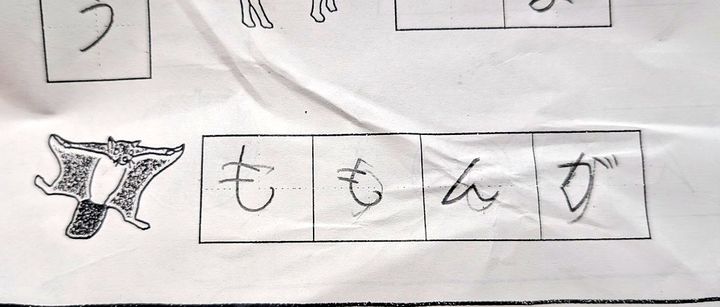 う
ももんが